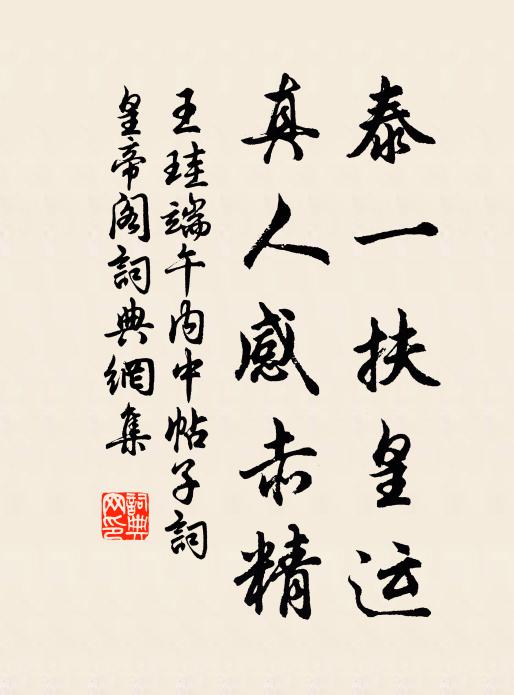 泰一扶皇运
真人感赤精
王珪端午内中帖子詞
皇帝阁詞典網集
詞典网印